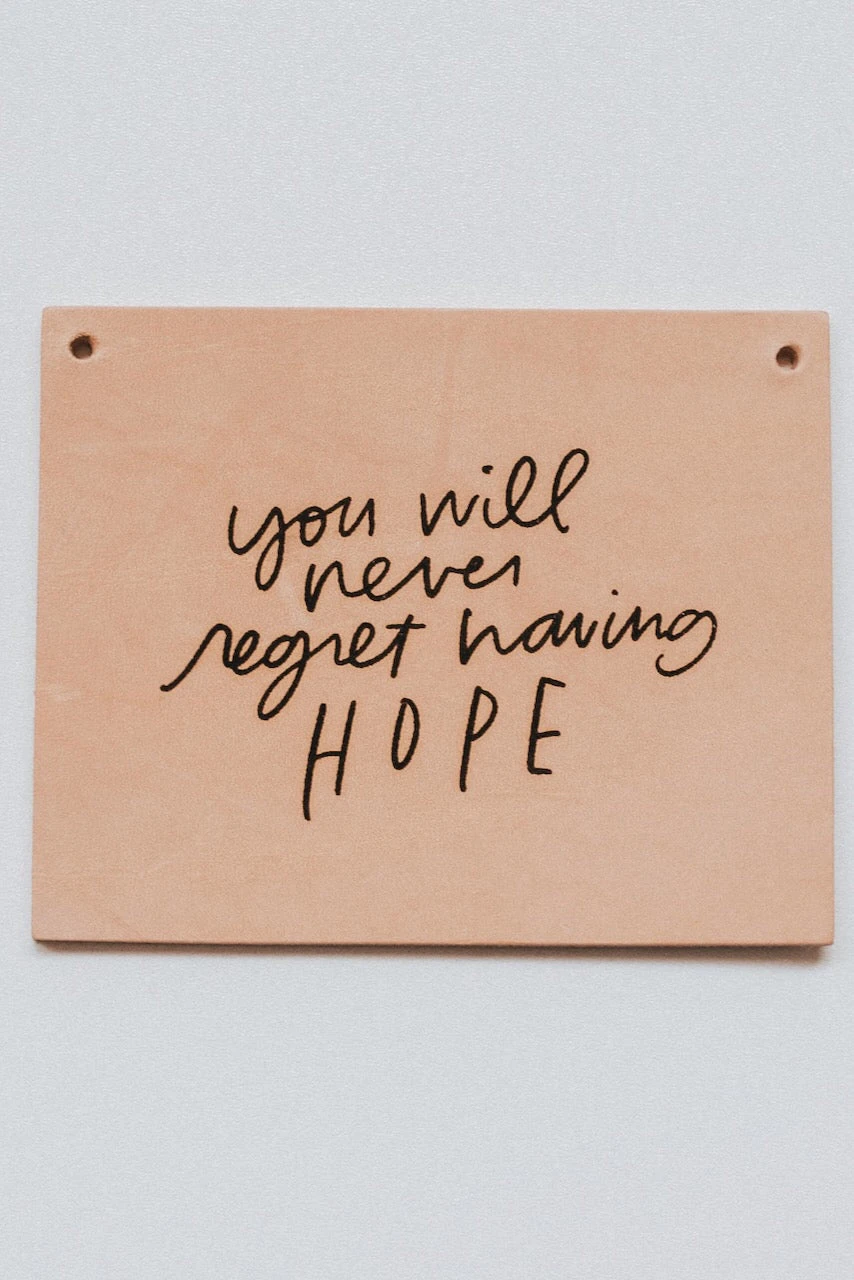 you will
never
regret having
HOPE